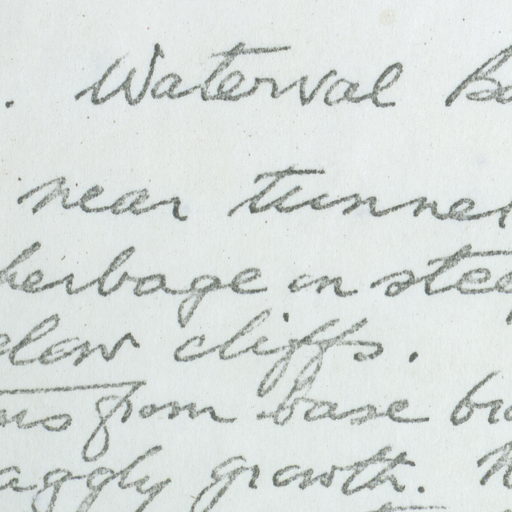 . Waterval Bo
near tunnel
herbage in stee
elow cliffs.
from base bra
aggly growth.